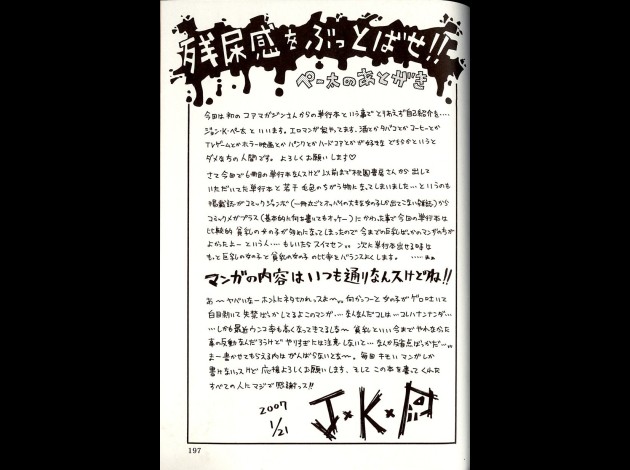 残尿感をぶっとばせ!!
ペー太のあとがき
今回は初のコアマガジンさんからの単行本という事でとりあえず自己紹介を‥‥
ジョン・K・ペー太といいます。エロマンガ家やってます。酒とかタバコとかコーヒーとか
TVゲームとかホラー映画とかパンクとかハードコアとかが好きな どちらかというと
ダメなちの人間です。よろしくお願いします♡
さて今回で6冊目の単行本なんスけど以前まで桃園書房さんから出して
いただいてた単行本と若干毛色のちがう物になってしまいました…というのも
掲載誌がコミックジャンボ(一冊まるごとオッパイの大きな女の子しか出てこない雑誌)から
コミックメガプラス(基本的に何を書いてもオッケー)にかわった事で今回の単行本は
比較的貧乳の女の子が多めになってしまったので今までの巨乳ばっかのマンガのが
よかったよーという人‥‥もしいたらスイマセン。次に単行本出せる時は
もっと巨乳の女の子と貧乳の女の子の比率をバランスよくします。
マンガの内容はいつも通りなんスけどね!!
あ〜ヤバいなーホントにネタ切れっスよ〜。何かっつーと女の子がゲロ吐いて
白目剥いて失禁ばっかしてるよこのマンガ‥‥なんなんだコレは…コレハナンナンダ…
…しかも最近ウンコ率も高くなってきてるしな〜 貧乳といい今までやれなかった
事の反動なんだろうけどやりすぎには注意しないと…なんか反省点ばっかだ…
まー書かせてもらえる内はがんばらないとな〜。毎回キモいマンガしか
書けないっスけど応援よろしくお願いします。そしてこの本を買ってくれた
すべての人にマジで感謝っス!!
2007
1/21
J×K×P
197